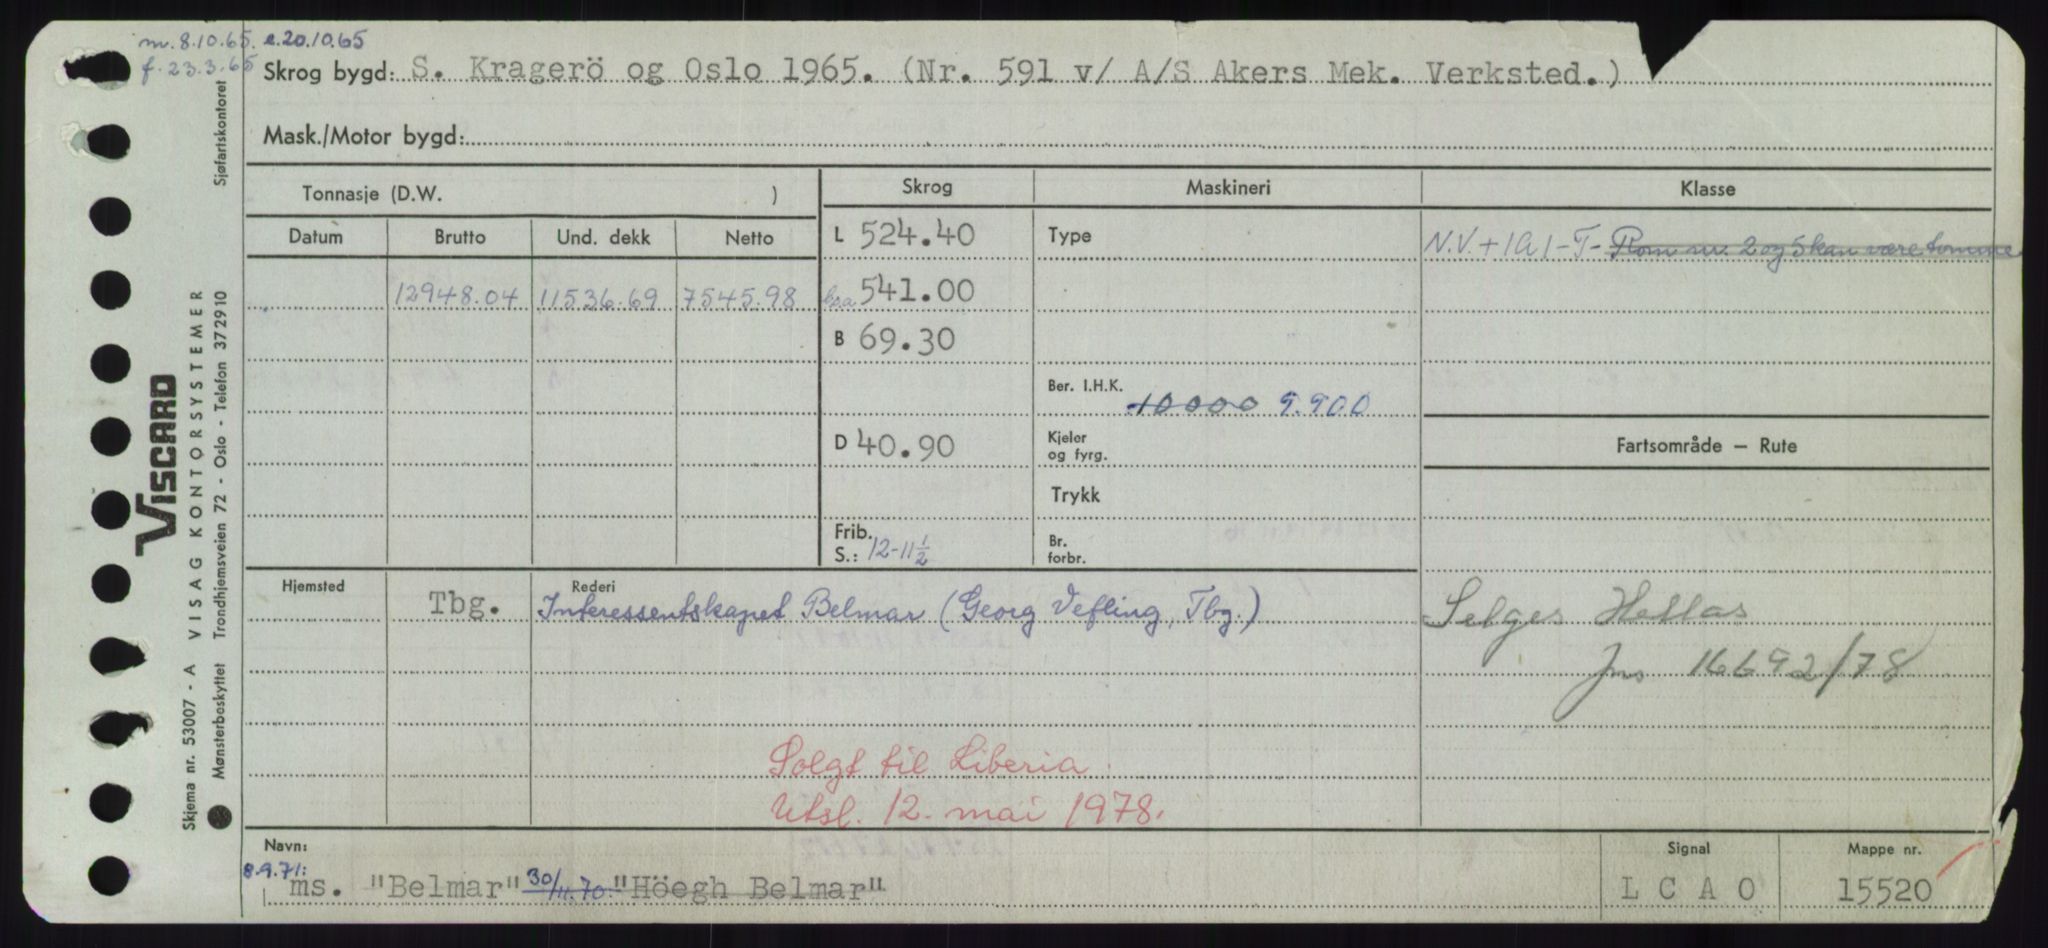 m. 8.10.65. e.20.10.65
f. 23.3.65
Skrog bygd: S. Kragerö og Oslo 1965. (Nr. 591 v/ A/S Akers Mek. Verksted.)
Mask./Motor bygd:
Tonnasje (D.W. )
Skrog
Maskineri
Klasse
Datum Brutto Und. dekk Netto
L 524.40
Type
N.V. + 1A1 - T - Rom nr. 2 og 5 kan være tomme
12948.04 11536.69 7545.98
541.00
B 69.30
Ber. I.H.K. 10000 9.900
D 40.90
Kjeler og fyrg.
Fartsområde — Rute
Trykk
Frib. S.: 12-11½
Br. forbr.
Hjemsted
Rederi
Tbg. Interessentskapet Belmar (Georg Vefling, Tbg.)
Selges Hellas
Jns 16692/78
Solgt til Liberia.
Utsl. 12. mai 1978.
Navn:
8.9.71: ms. "Belmar" 30/11.70. "Höegh Belmar"
Signal
L C A O
Mappe nr.
15520
Skjema nr. 53007 - A VISAG KONTORSYSTEMER
VISCARD
Mønsterbeskyttet Trondhjemsveien 72 - Oslo - Telefon 372910 Sjøfartskontoret